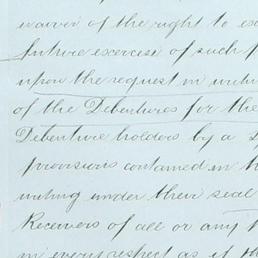 waiver of the right to ex
future exercise of such p
upon the request in writ
of the Debentures for the
Debenture holders by a
provisions contained in th
writing under their seal
Receivers of all or any
in every respect as if th